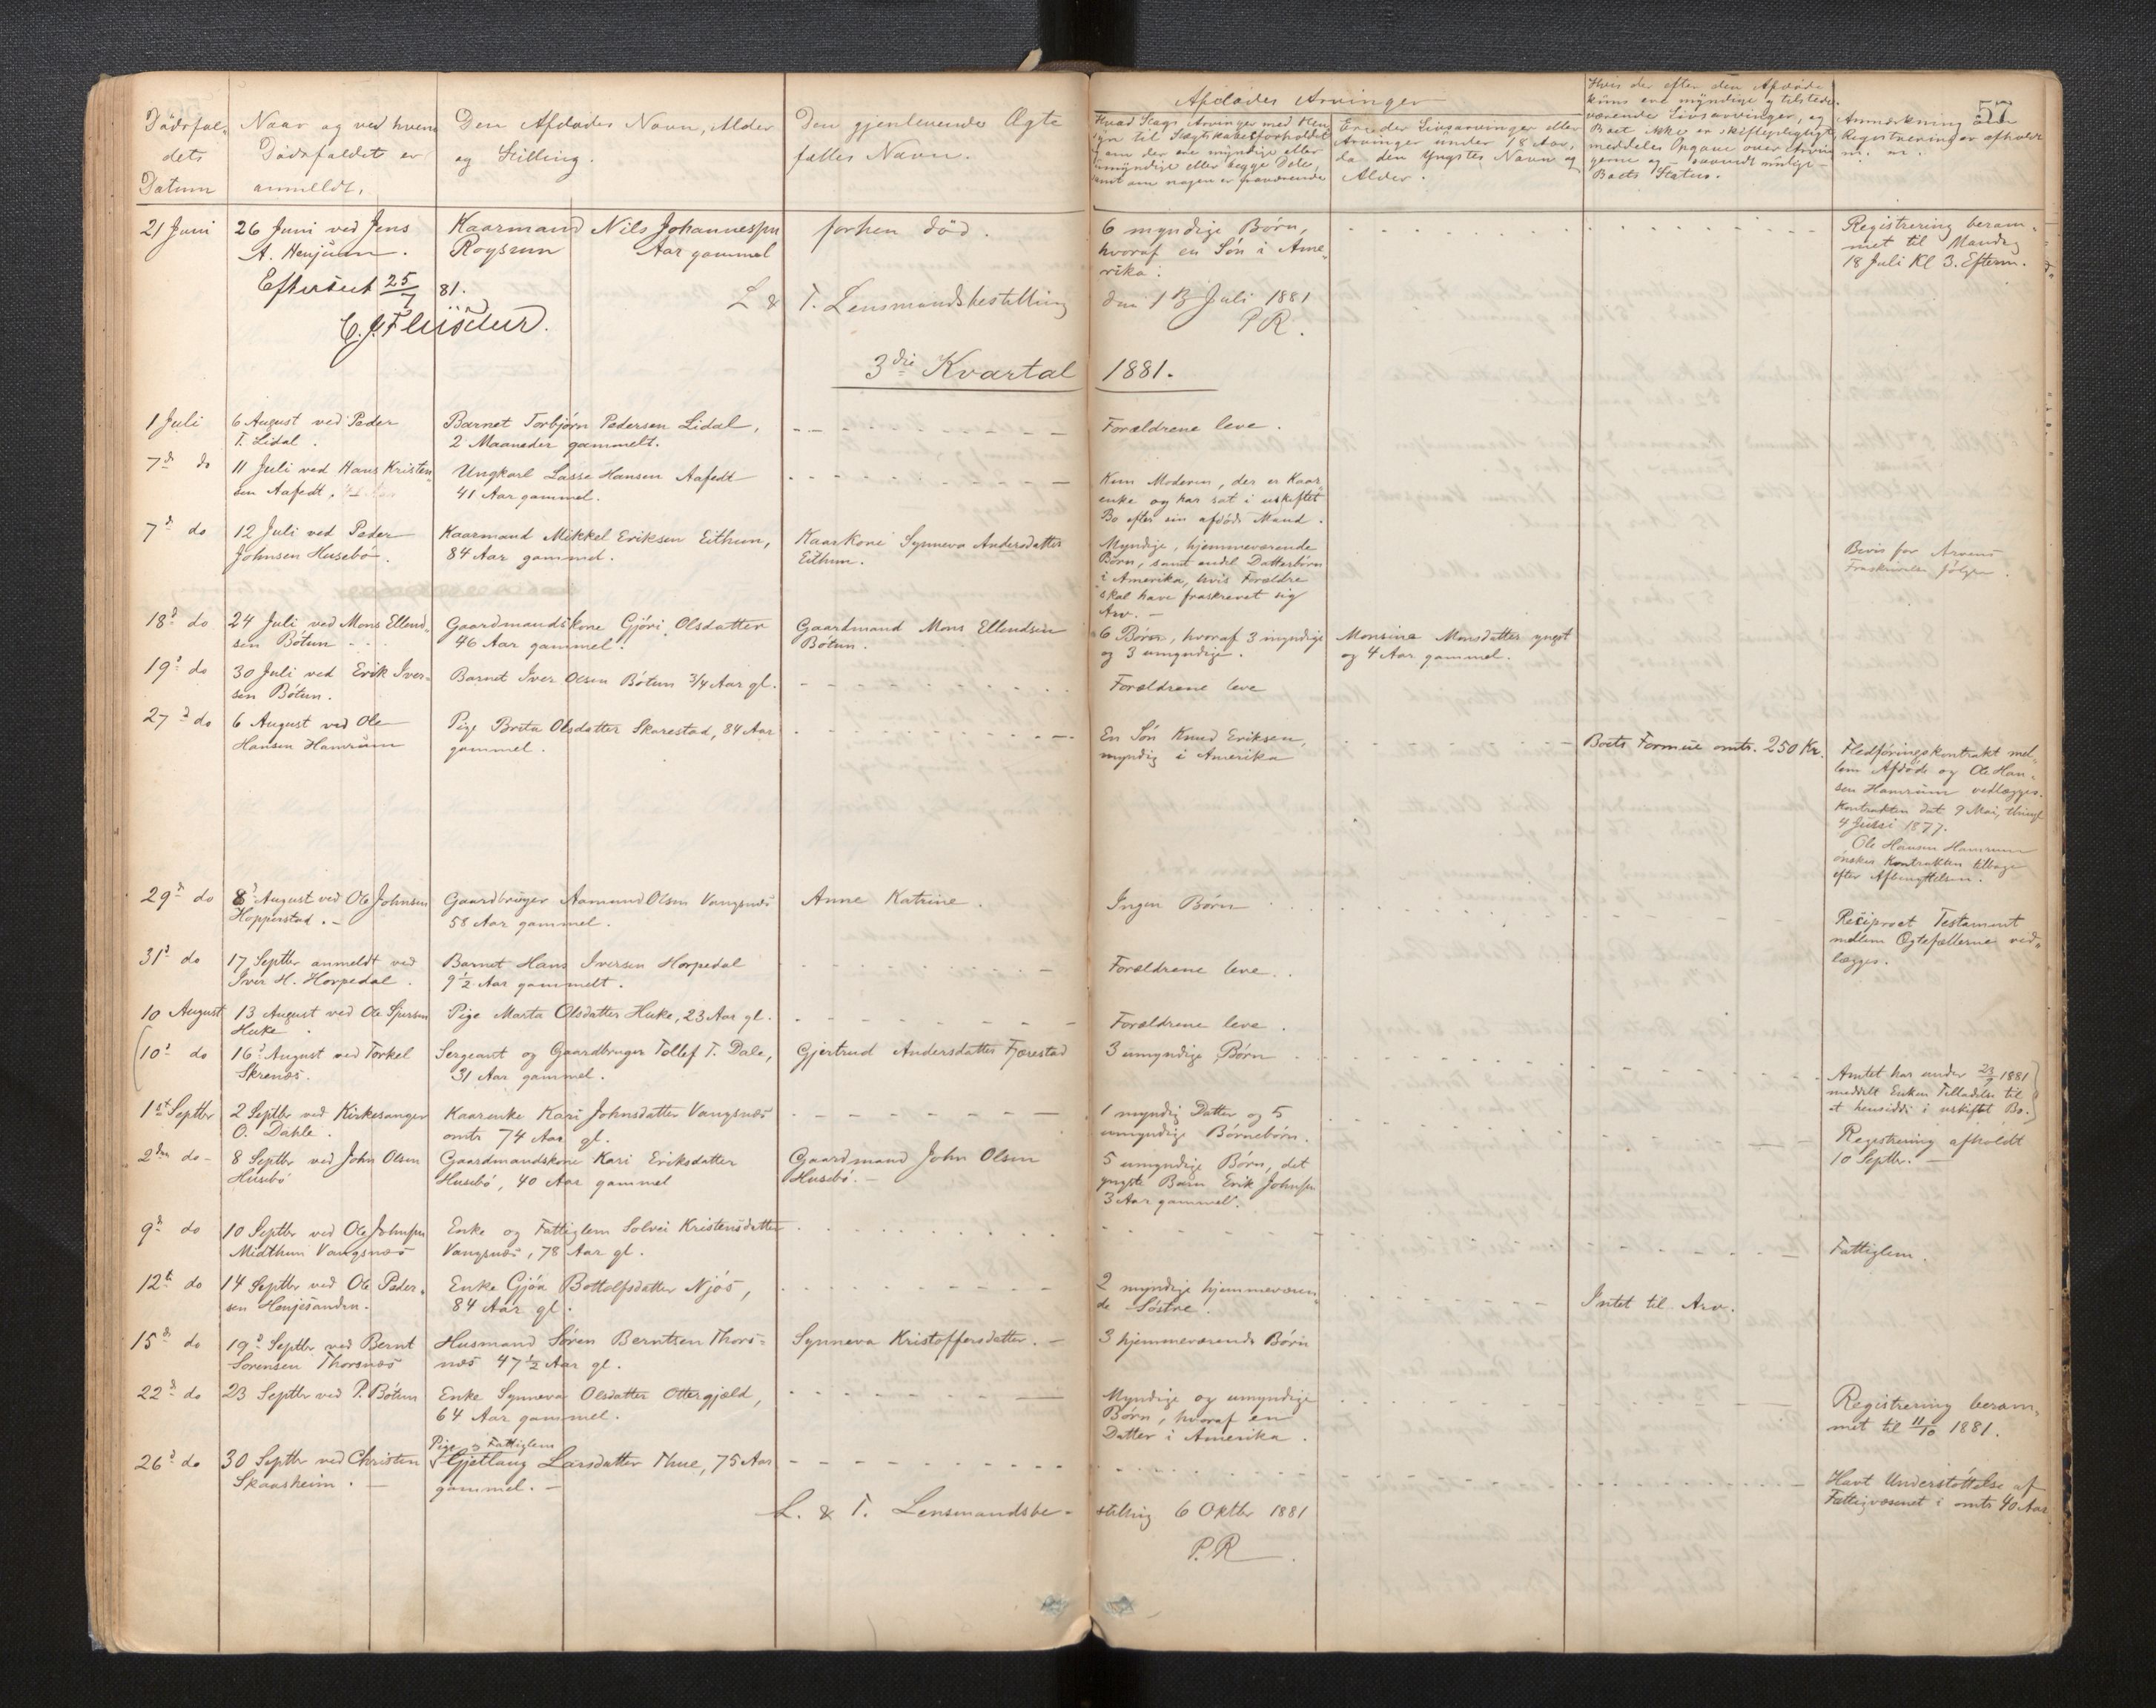 57
Dödsfal-
dets
Datum
Naar og ved hvem
Dödsfaldet er
anmeldt.
Den Afdødes Navn, Alder
og Stilling.
Den gjenlevende Ægte
fælles Navn.
Afdødes Arvinger
Hvad Slags Arvinger med Hen
syn til Slægtskabsforholdet
om der ere myndige eller
umyndige eller begge Dele,
samt om nogen er fraværende
Ere der Livsarvinger eller
Arvinger under 18 Aar,
da den Yngstes Navn og
Alder.
Hvis der efter den Afdøde
kuns ere myndige og tilstede-
værende Livsarvinger, og
Boet ikke er skiftepligtigt
meddeles Opgave over Arvin
gerne og saavidt mulige
Boets Status.
Anmærkning om
Registrering er afholdt
m. m.
21 Juni
26 Juni ved Jens
A. Henjum.
Kaarmand Nils Johannessen
Roysum Aar gammel
forhen död.
6 myndige Børn,
hvoraf en Søn i Ame-
rika.
Registrering beram-
met til Mandag
18 Juli Kl 3. Efterm.
Efterseet 25/7 81.
L & T. Lensmandsbestilling
den 13 Juli 1881
P R.
3die Kvartal 1881.
1 Juli
6 August ved Peder
T. Lidal.
Barnet Torbjørn Pedersen Lidal,
2 Maaneder gammelt.
Forældrene leve.
7d do
11 Juli ved Hans Kristen-
sen Aafedt,
Ungkarl Lasse Hansen Aafedt
41 Aar gammel.
Kun Moderen, der er Kaar-
enke og har sat i uskiftet
Bo efter sin afdöde Mand.
7d do
12 Juli ved Peder
Johnsen Husebö.
Kaarmand Mikkel Eriksen Eithun,
84 Aar gammel.
Kaarkone Synneva Andersdatter
Eithun.
Myndige, hjemmeværende
Börn, samt endel Datterbörn
i Amerika, hvis Forældre
skal have fraskrevet sig
Arv. -
Bevis for Arvens
Fraskrivelse følger.
18d do
24 Juli ved Mons Ellend-
sen Bötun
Gaardmandskone Gjöri Olsdatter
46 Aar gammel.
Gaardmand Mons Ellendsen
Bötun.
6 Börn, hvoraf 3 myndige
og 3 umyndige.
Monsine Monsdatter yngst
og 4 Aar gammel.
19d do
30 Juli ved Erik Iver-
sen Bötun.
Barnet Iver Olsen Bötun 3/4 Aar gl.
Forældrene leve
27d do
6 August ved Ole
Hansen Hamrum
Pige Brita Olsdatter Skarestad, 84 Aar
gammel.
En Sön Knud Eriksen,
myndig i Amerika
Boets Formue omtr. 250 Kr.
Fledföringskontrakt mel-
lem Afdöde og Ole Han-
sen Hamrum vedlægges.
Kontrakten dat 9 Mai, thingl
4 Juni 1877.
Ole Hansen Hamrum
önsker Kontrakten tilbage
efter Afbenyttelsen.
29d do
8d August ved Ole Johnsen
Hopperstad. -
Gaardbruger Aamund Olsen Vangsnæs
58 Aar gammel.
Anne Katrine.
Ingen Börn
Reciproct Testament
mellem Ægtefællerne ved-
lægges.
31d do
17 Septbr anmeldt ved
Iver H. Horpedal.
Barnet Hans Iversen Horpedal
9 1/2 Aar gammelt.
Forældrene leve.
10 August
13 August ved Ole Sjursen
Huke.
Pige Marta Olsdatter Huke, 23 Aar gl.
Forældrene leve.
10d do
16d August ved Torkel
Skrenæs.
Sergeant og Gaardbruger Tollef T. Dale,
31 Aar gammel.
Gjertrud Andersdatter Fjærestad
3 umyndige Børn
Amtet har under 23/9 1881
meddelt Enken Tilladelse til
at hensidde i uskiftet Bo.
1st Septbr
2 Septbr ved Kirkesanger
O. Dahle.
Kaarenke Kari Johnsdatter Vangsnæs
omtr 74 Aar gl.
1 myndig Datter og 5
umyndige Börnebörn.
Registrering afholdt
10 Septbr. -
2den do -
8 Septbr ved John Olsen
Husebö
Gaardmandskone Kari Eriksdatter
Husebö, 40 Aar gammel
Gaardmand John Olsen
Husebö. -
5 umyndige Börn, det
yngste Barn Erik Johnsen
3 Aar gammel.
9d do
10 Septbr ved Ole Johnsen
Midthun Vangsnæs
Enke og Fattiglem Solvei Kristensdatter
Vangsnæs, 78 Aar gl.
Fattiglem.
12t do
14 Septbr ved Ole Peder-
sen Henjesanden.
Enke Gjöa Bottolfsdatter Njös,
84 Aar gl.
2 myndige hjemmeværen-
de Söstre.
Intet til Arv.
15d do
19d Septbr ved Bernt
Sörensen Thorsnæs
Husmand Sören Berntsen Thors-
næs 47 1/2 Aar gl.
Synneva Kristoffersdatter. -
3 hjemmeværende Börn
22d do
23 Septbr ved P. Bötun
Enke Synneva Olsdatter Ottergjeld,
64 Aar gammel.
Myndige og umyndige
Börn, hvoraf en
Datter i Amerika.
Registrering beram-
met til 11/10 1881.
26d do
30 Septbr ved Christen
Skaasheim. -
Pige og Fattiglem
Gjetlaug Larsdatter Thue, 75 Aar
gammel. -
Havt Understöttelse af
Fattigvæsenet i omtr 40 Aar
L. & T. Lensmandsbe-
stilling 6 Oktbr 1881
P. R.